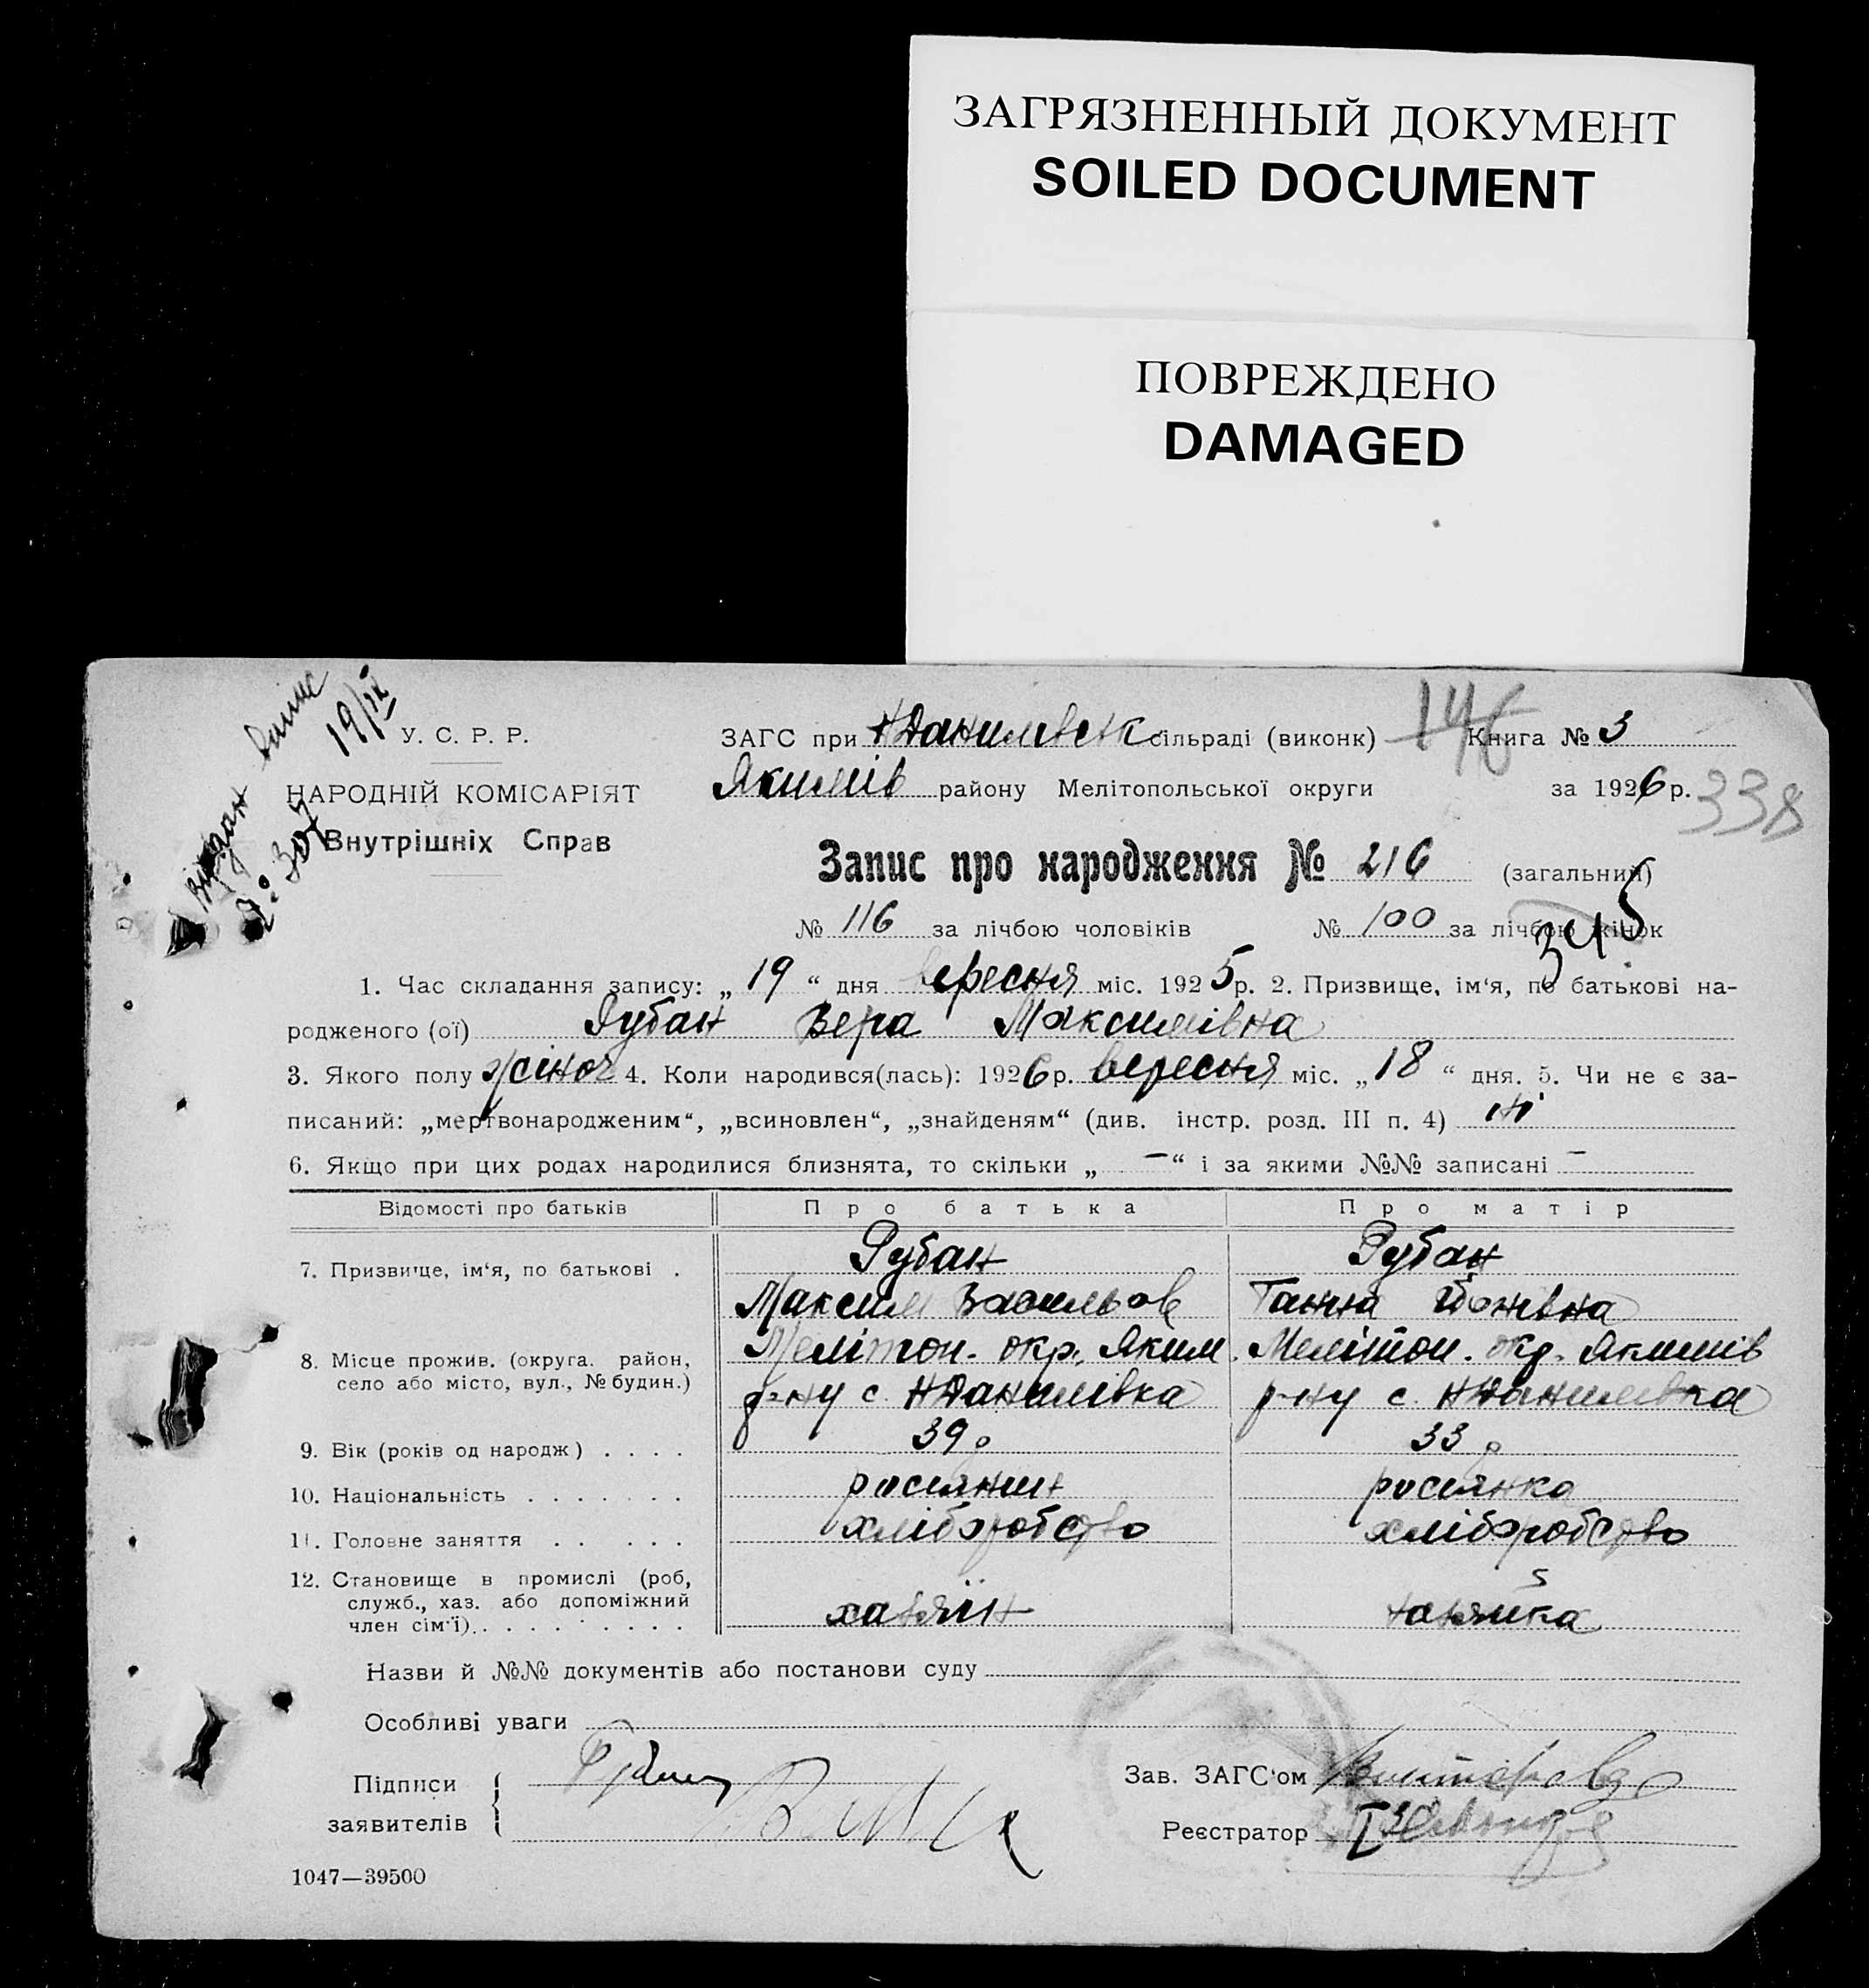 ЗАГРЯЗНЕННЫЙ ДОКУМЕНТ
SOILED DOCUMENT
ПОВРЕЖДЕНО
DAMAGED
19/IX
№ 307
У. С. Р. Р.
НАРОДНІЙ КОМІСАРІЯТ
Внутрішніх Справ
ЗАГС при НДанилівськ сільраді (виконк) 146 Книга № 3
Якимів району Мелітопольської округи за 1926 р. 338
Запис про народження № 216 (загальний)
№ 116 за лічбою чоловіків № 100 за лічбою жінок
345
1. Час складання запису: „ 19 “ дня вересня міс. 1925 р. 2. Призвище, ім‘я, по батькові на-
родженого (ої) Рубан Вера Максимівна
3. Якого полу жіноч 4. Коли народився(лась): 1926 р. вересня міс. „ 18 “ дня. 5. Чи не є за-
писаний: „мертвонародженим“, „всиновлен“, „знайденям“ (див. інстр. розд. III п. 4) ні
6. Якщо при цих родах народилися близнята, то скільки „ — “ і за якими №№ записані —
Відомості про батьків Про батька Про матір
7. Призвище, ім‘я, по батькові . Рубан Рубан
Максим Васильов Ганна
8. Місце прожив. (округа. район, село або місто, вул., № будин.) Мелітоп. окр. Яким. Мелітоп. окр. Якимів
р-ну с. НДанилівка р-ну с. НДанилівка
9. Вік (років од народж) . . . . 39 р 33 р
10. Національність . . . . . . . росиянин росиянка
11. Головне заняття . . . . . хліборобство хліборобство
12. Становище в промислі (роб, служб., хаз. або допоміжний член сім‘ї). . . . . . . . . . хазяїн хазяйка
Назви й №№ документів або постанови суду
Особливі уваги
Підписи заявителів { Рубан
Зав. ЗАГС‘ом
Реєстратор
1047—39500